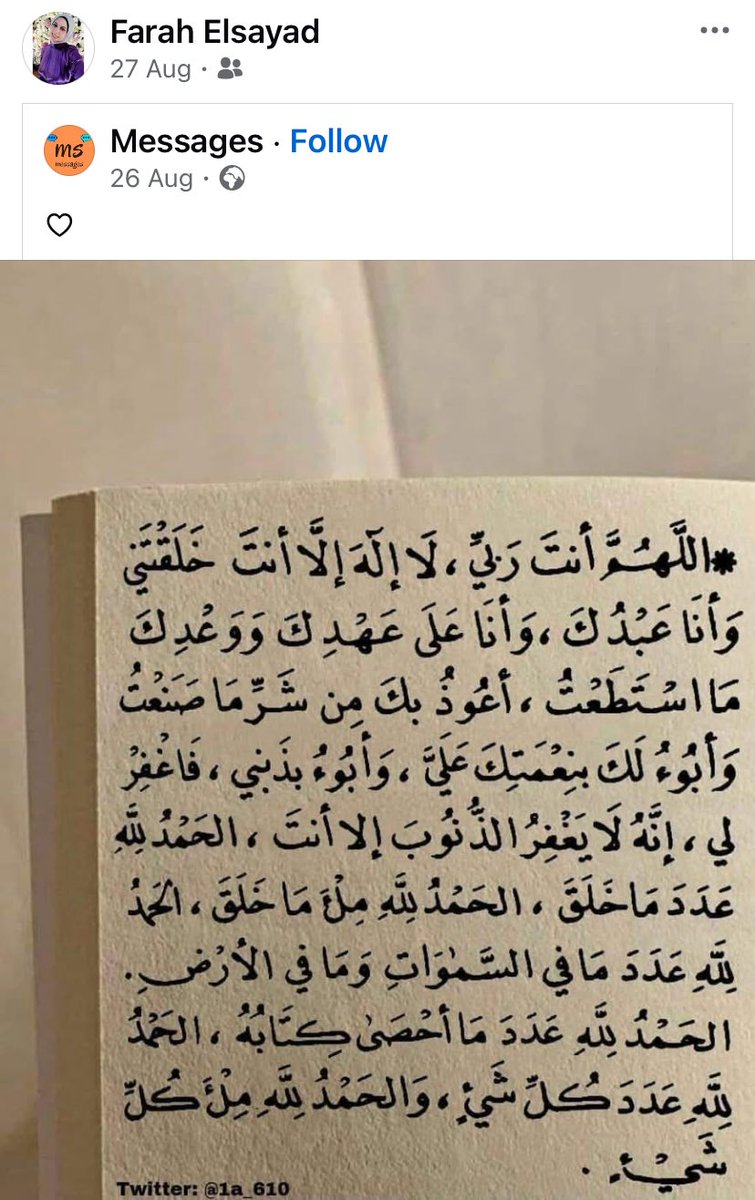 Farah Elsayad
27 Aug
ms
messages
Messages · Follow
26 Aug
*اللَّهُمَّ أنتَ رَبِّي، لَا إِلَٰهَ إلَّا أنتَ خَلَقْتَنِي
وَأنَا عَبْدُكَ، وَأنَا عَلَى عَهْدِكَ وَوَعْدِكَ
مَا اسْتَطَعْتُ، أعُوذُ بكَ مِن شَرِّ مَا صَنَعْتُ
وَأبُوءُ لَكَ بنِعْمَتِكَ عَلَيَّ، وَأبُوءُ بذَنبِي، فَاغْفِرْ
لي، إنَّهُ لَا يَغْفِرُ الذُّنُوبَ إلا أنتَ، الحَمْدُ لِلَّهِ
عَدَدَ مَا خَلَقَ، الحَمْدُ لِلَّهِ مِلْءَ مَا خَلَقَ، الحَمْدُ
لِلَّهِ عَدَدَ مَا فِي السَّمٰوَاتِ وَمَا فِي الأَرْضِ.
الحَمْدُ لِلَّهِ عَدَدَ مَا أحْصَىٰ كِتَابُهُ، الحَمْدُ
لِلَّهِ عَدَدَ كُلِّ شَيْءٍ، وَالحَمْدُ لِلَّهِ مِلْءَ كُلِّ
شَيْءٍ.
Twitter: @1a_610